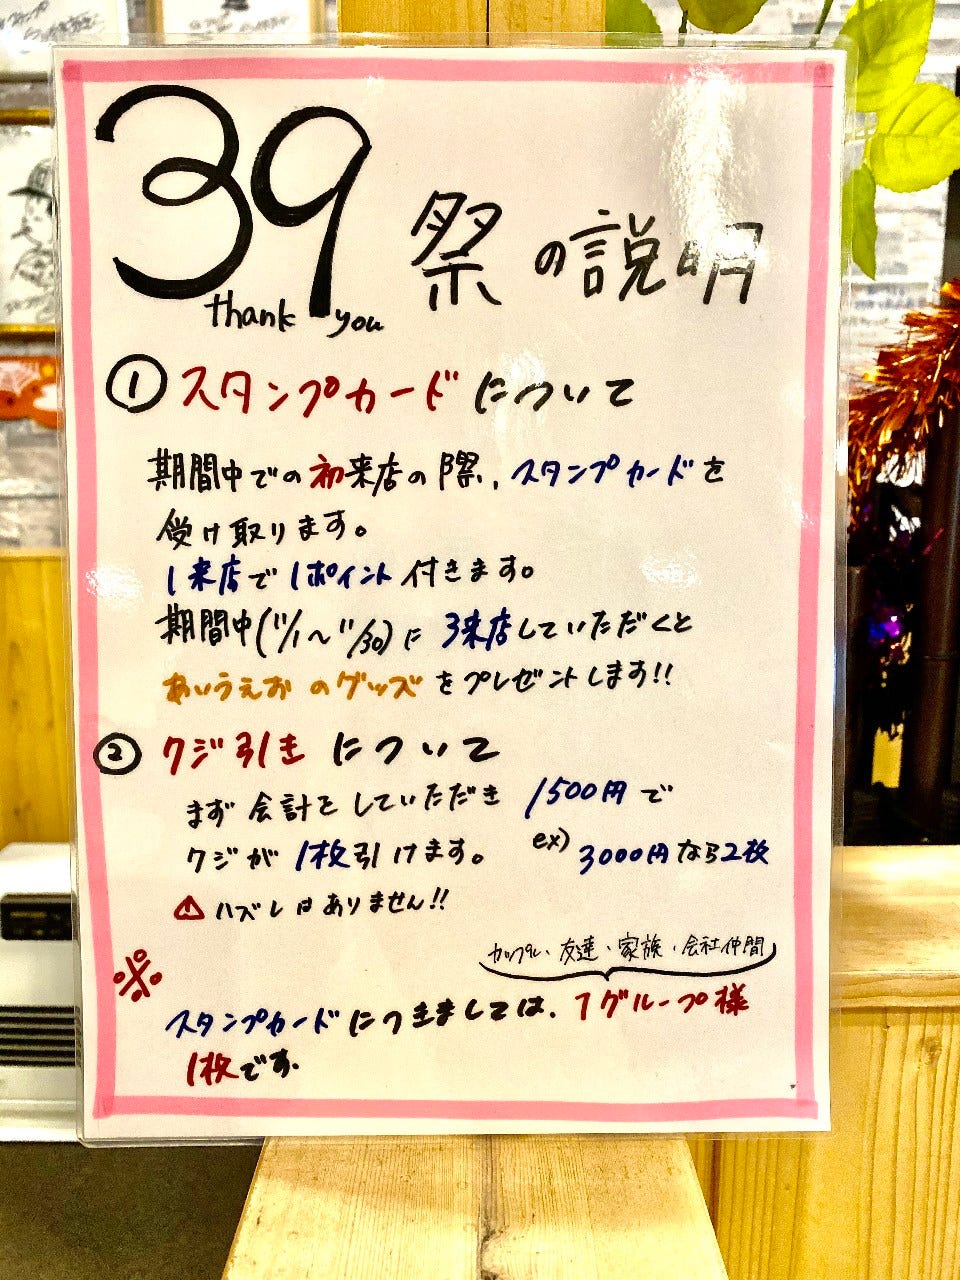 39祭の説明
thank you
① スタンプカードについて
期間中での初来店の際、スタンプカードを
受け取ります。
1来店で1ポイント付きます。
期間中(11/1〜11/30)に3来店していただくと
あいうえおのグッズをプレゼントします!!
② クジ引きについて
まず会計をしていただき1500円で
クジが1枚引けます。
ex) 3000円なら2枚
⚠ ハズレはありません!!
カップル、友達・家族・会社仲間
※
スタンプカードにつきましては、1グループ様
1枚です.